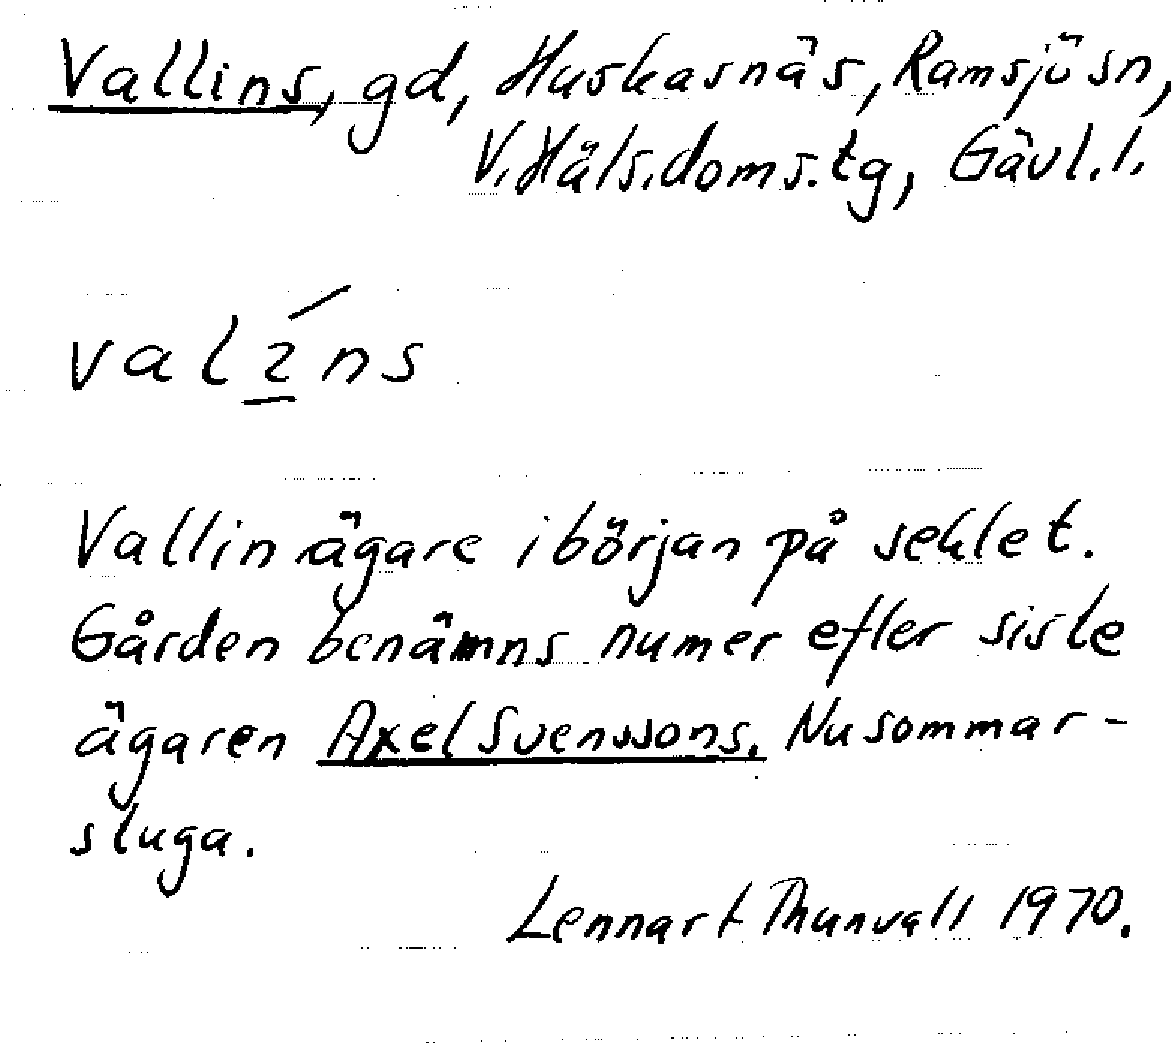 Vallins, gd, Huskasnäs, Ramsjösn,
V. Häls. doms. tg, Gävl. l.
valíns
Vallin ägare i början på seklet.
Gården benämns numer efter siste
ägaren Axel Svenssons. Nu sommar-
stuga.
Lennart Thunvall 1970.